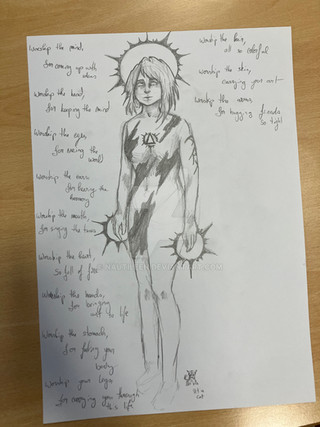 Worship the mind,
for coming up with
ideas
Worship the head,
for keeping the mind
Worship the eyes
for seeing the
world
Worship the ears
for hearing the
Worship the mouth,
for singing the tunes
Worship the heart,
so full of fire
Worship the hands,
for bringing
to life
Worship the stomach,
for fueling your
body
Worship your legs
for carrying you through
this life
worship the hair,
all so colorful
worship the skin,
carrying your art
Worship the arms,
for hugging friends
so tight